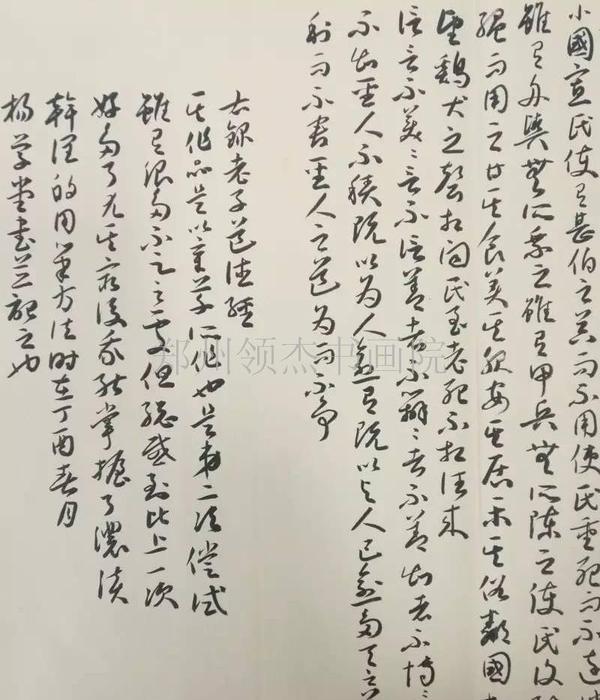 小國寡民使有甚伯之器而不用使民重死而不遠
雖有舟輿無所乘之雖有甲兵無所陳之使民復
繩而用之甘其食美其服安其居樂其俗鄰國
望鷄犬之聲相聞民至老死不相往來
信言不美美言不信善者不辯辯者不善知者不博
不知聖人不積既以為人愈有既以與人己愈多天
利而不害聖人之道為而不爭
右錄老子道德經
其作品是以章草所作也是第二次嘗試
雖有很多不足之處但總感到比上一次
好多了尤其最後我能掌握了濃淡
乾濕的用筆方法時在丁酉春月
楊學堂書並記之也
郑州领杰书画院